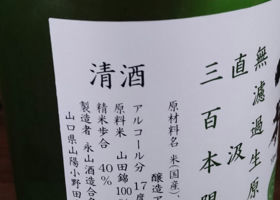 無濾過生原
直汲
三百本限
原材料名 米(国産)、
醸造ア
清酒
アルコール分 17度
原料米 山田錦100
精米歩合 40%
製造者 永山酒造合名
山口県山陽小野田